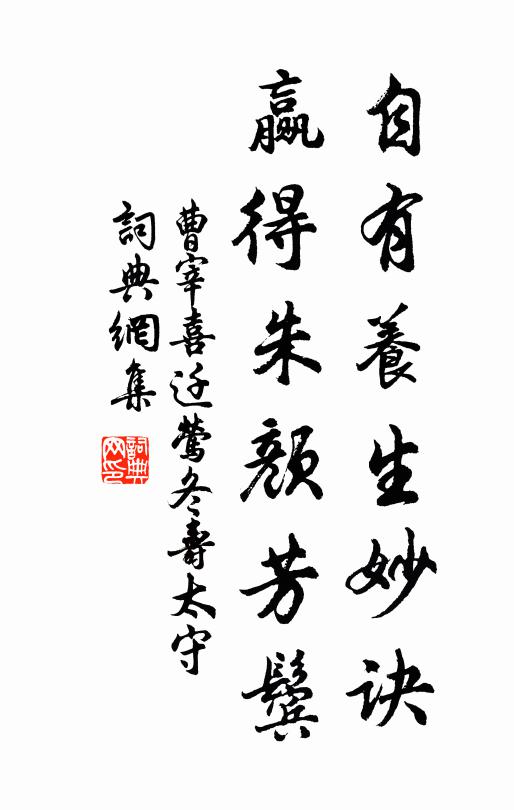 自有養生妙訣
贏得朱顏芳鬢
曹宰喜迁鶯冬壽太守
詞典網集
詞典网印